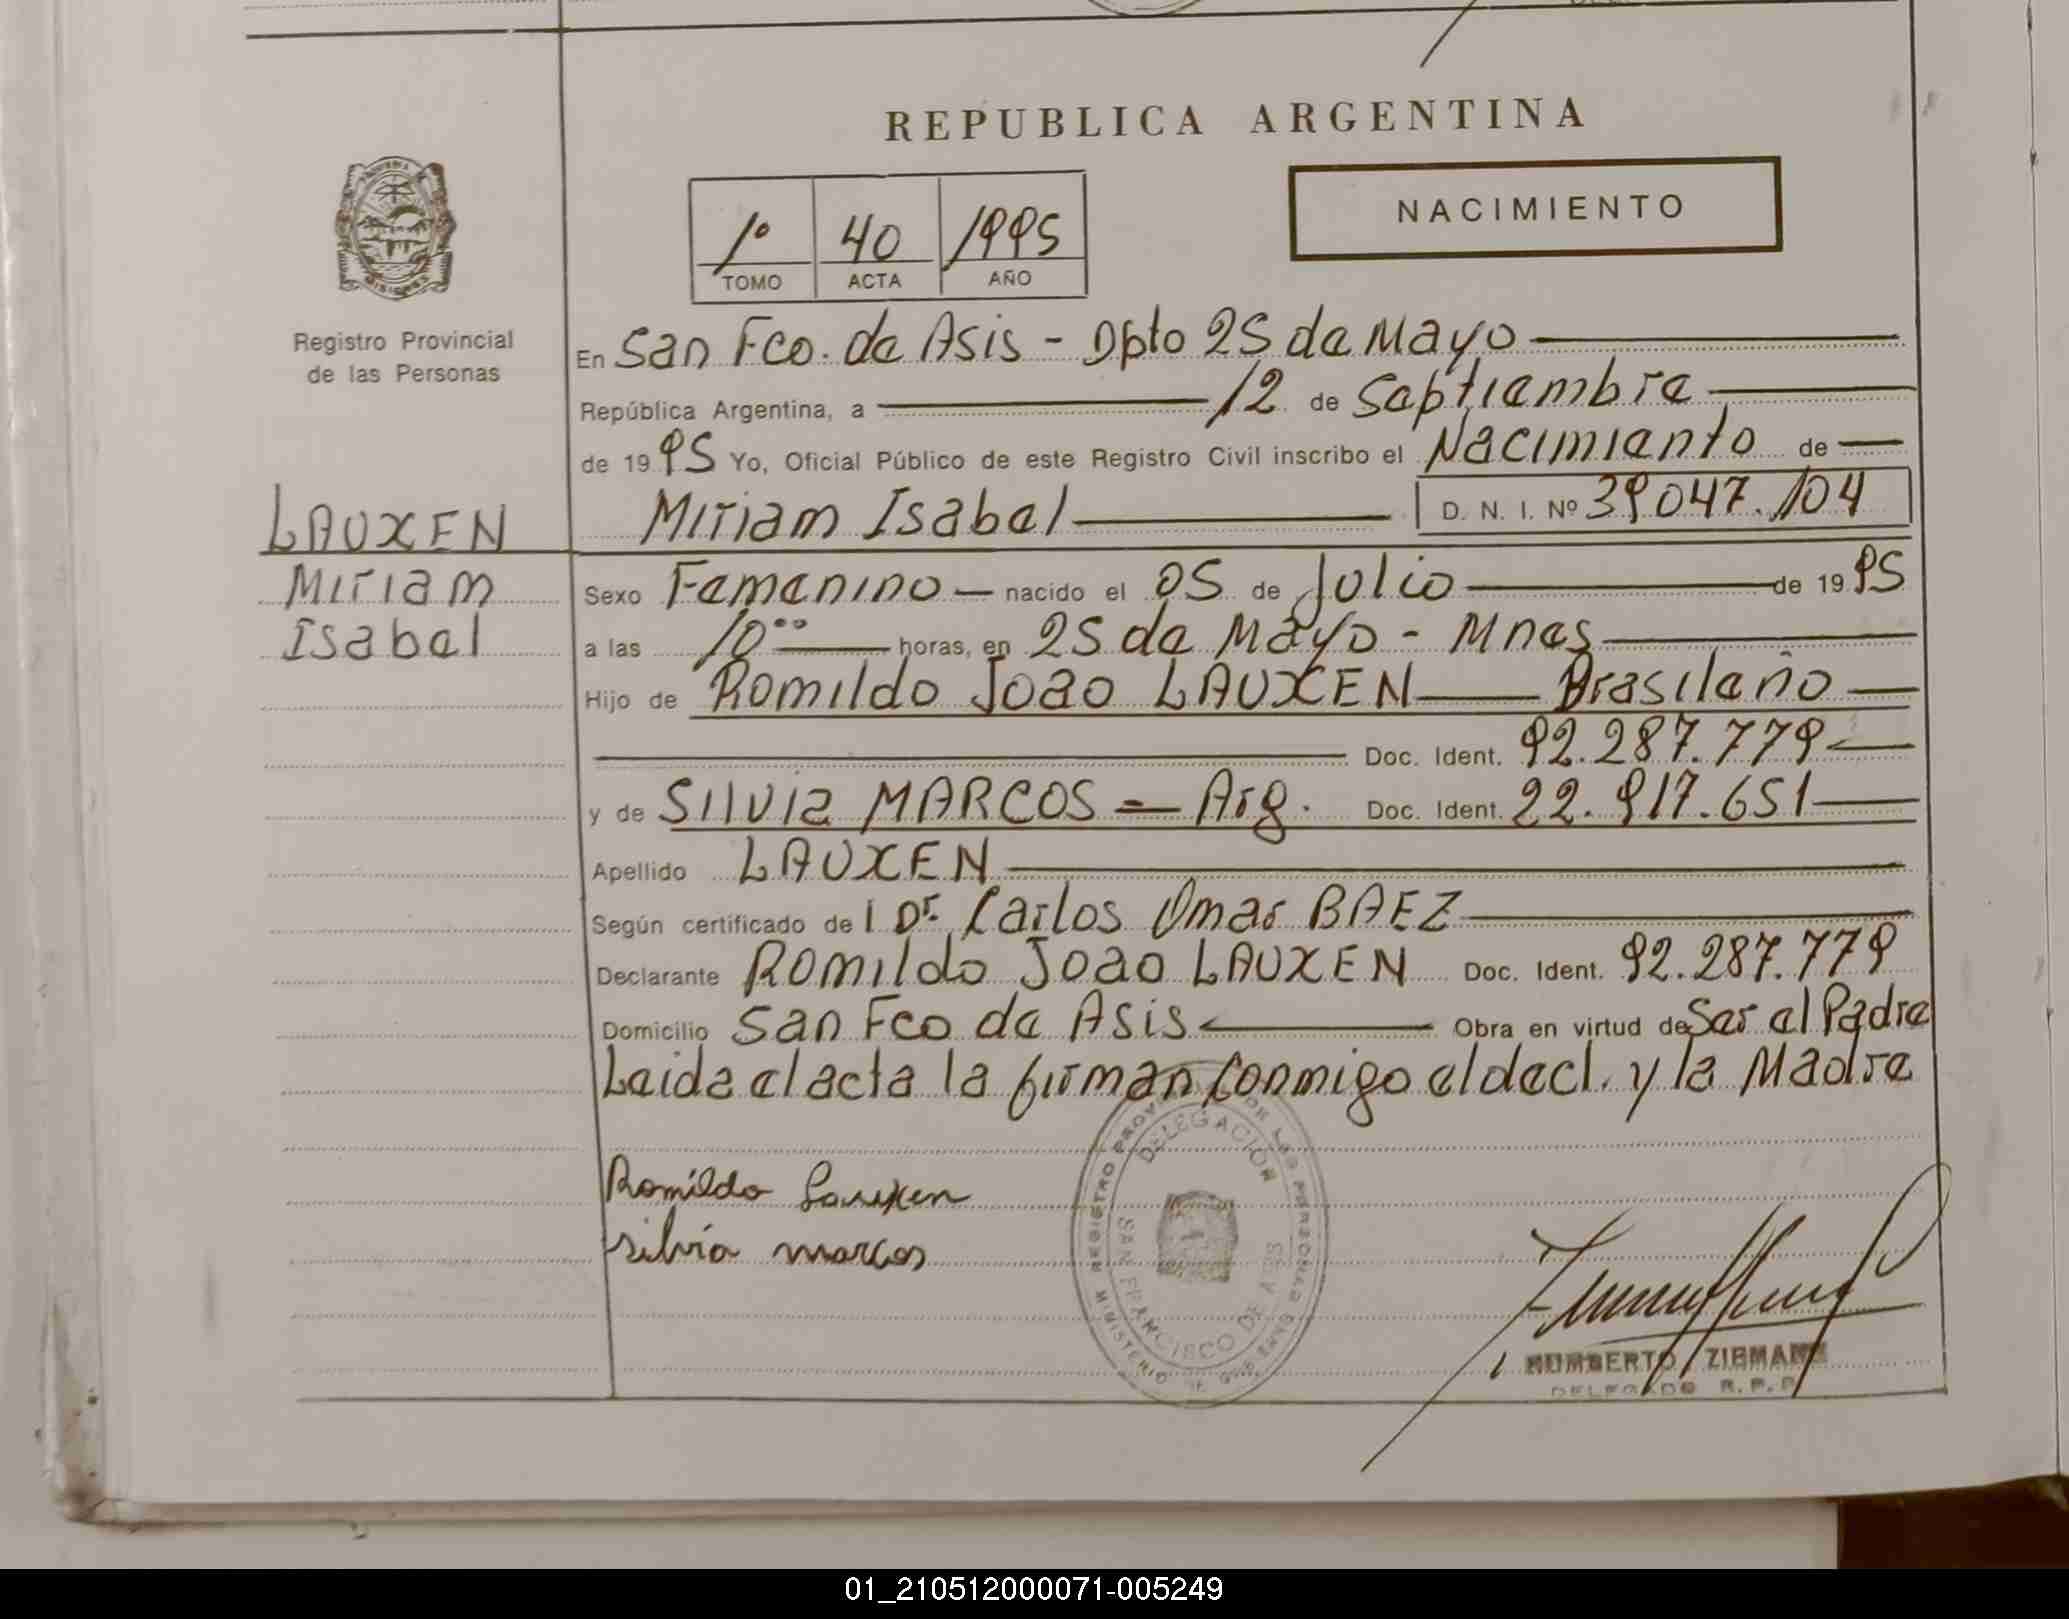 REPUBLICA ARGENTINA
NACIMIENTO
1º 40 1995
TOMO ACTA AÑO
Registro Provincial
de las Personas
En San Fco. de Asis - Dpto 25 de Mayo
República Argentina, a 12 de Septiembre
de 1995 Yo, Oficial Público de este Registro Civil inscribo el Nacimiento de
Miriam Isabel D. N. I. Nº 39.047.104
LAUXEN
Miriam
Isabel
Sexo Femenino nacido el 05 de Julio de 1995
a las 10ºº horas, en 25 de Mayo - Mnes
Hijo de Romildo Joao LAUXEN Brasileño
Doc. Ident. 92.287.779
y de Silvia MARCOS = Arg. Doc. Ident. 22.917.651
Apellido LAUXEN
Según certificado del Dr. Carlos Omar BAEZ
Declarante Romildo Joao LAUXEN Doc. Ident. 92.287.779
Domicilio San Fco de Asis Obra en virtud de Ser el Padre
Leida el acta la firman conmigo el decl. y la Madre
Romildo Lauxen
silvia marcos
DELEGACIÓN
SAN FRANCISCO DE ASIS
HUMBERTO ZIEMANN
DELEGADO R. P. P.
01_210512000071-005249